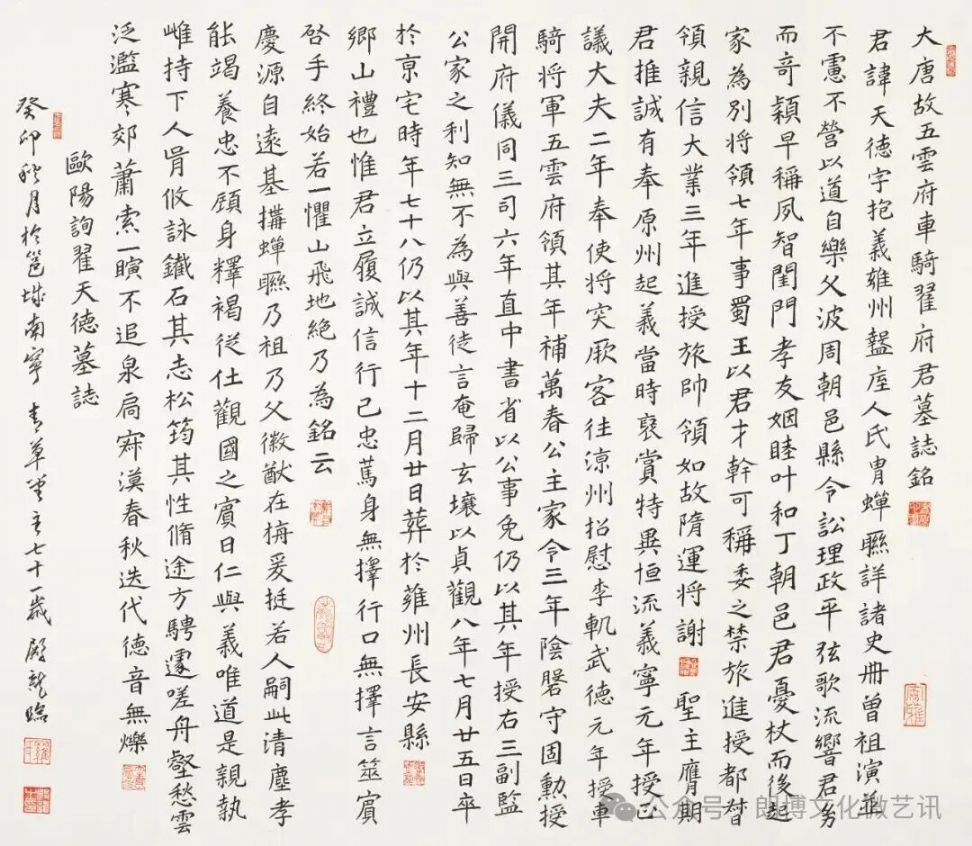 大唐故五雲府車騎翟府君墓誌銘
君諱天德字抱義雍州盩厔人氏胄蟬聯詳諸史册曾祖演並
不慮不營以道自樂父波周朝邑縣令訟理政平弦歌流響君幼
而奇穎早稱夙智閨門孝友姻睦叶和丁朝邑君憂杖而後起
家為別將領七年事蜀王以君才幹可稱委之禁旅進授都督
領親信大業三年進授旅帥領如故隋運將謝 聖主膺期
君推誠有奉原州起義當時裒賞特異恒流義寧元年授正
議大夫二年奉使將突厥客往涼州招慰李軌武德元年授車
騎將軍五雲府領其年補萬春公主家令三年陰磐守固勳授
開府儀同三司六年直中書省以公事免仍以其年授右三副監
公家之利知無不為與善徒言奄歸玄壤以貞觀八年七月廿五日卒
於京宅時年七十八仍以其年十二月廿日葬於雍州長安縣
鄉山禮也惟君立履誠信行己忠篤身無擇行口無擇言筮賓
啓手終始若一懼山飛地絶乃為銘云
慶源自遠基搆蟬聯乃祖乃父徽猷在旃爰挺若人嗣此清塵孝
能竭養忠不顧身釋褐從仕觀國之賓日仁與義唯道是親執
雌持下人胥攸詠鐵石其志松筠其性脩途方騁遽嗟舟壑愁雲
泛濫寒郊蕭索一瞑不追泉扃寂漠春秋迭代德音無爍
歐陽詢翟天德墓誌
癸卯秋月於邕城南寧 青草堂主七十一歲 殿龍臨
公众号·朗博文化微艺讯